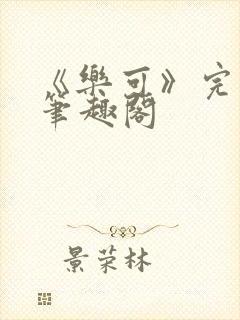 《樂可》完
筆趣閣
景荣林